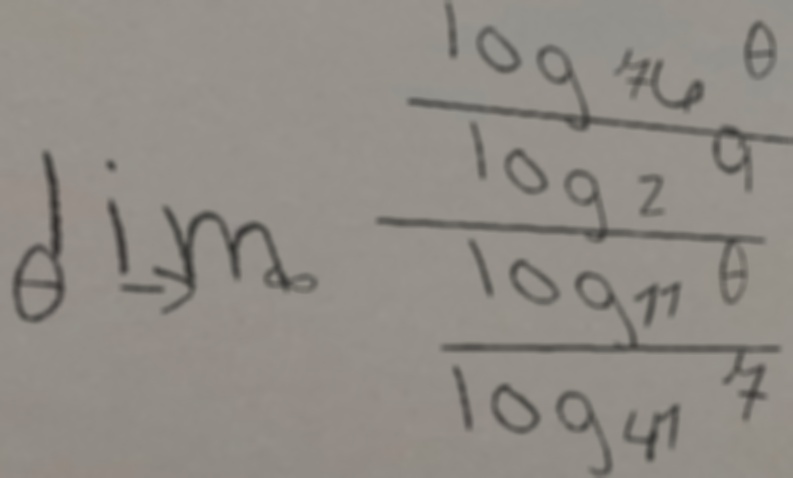 \lim_{\theta \to \infty} \frac{\frac{\log_{76} \theta}{\log_{2} 9}}{\frac{\log_{11} \theta}{\log_{41} 7}}